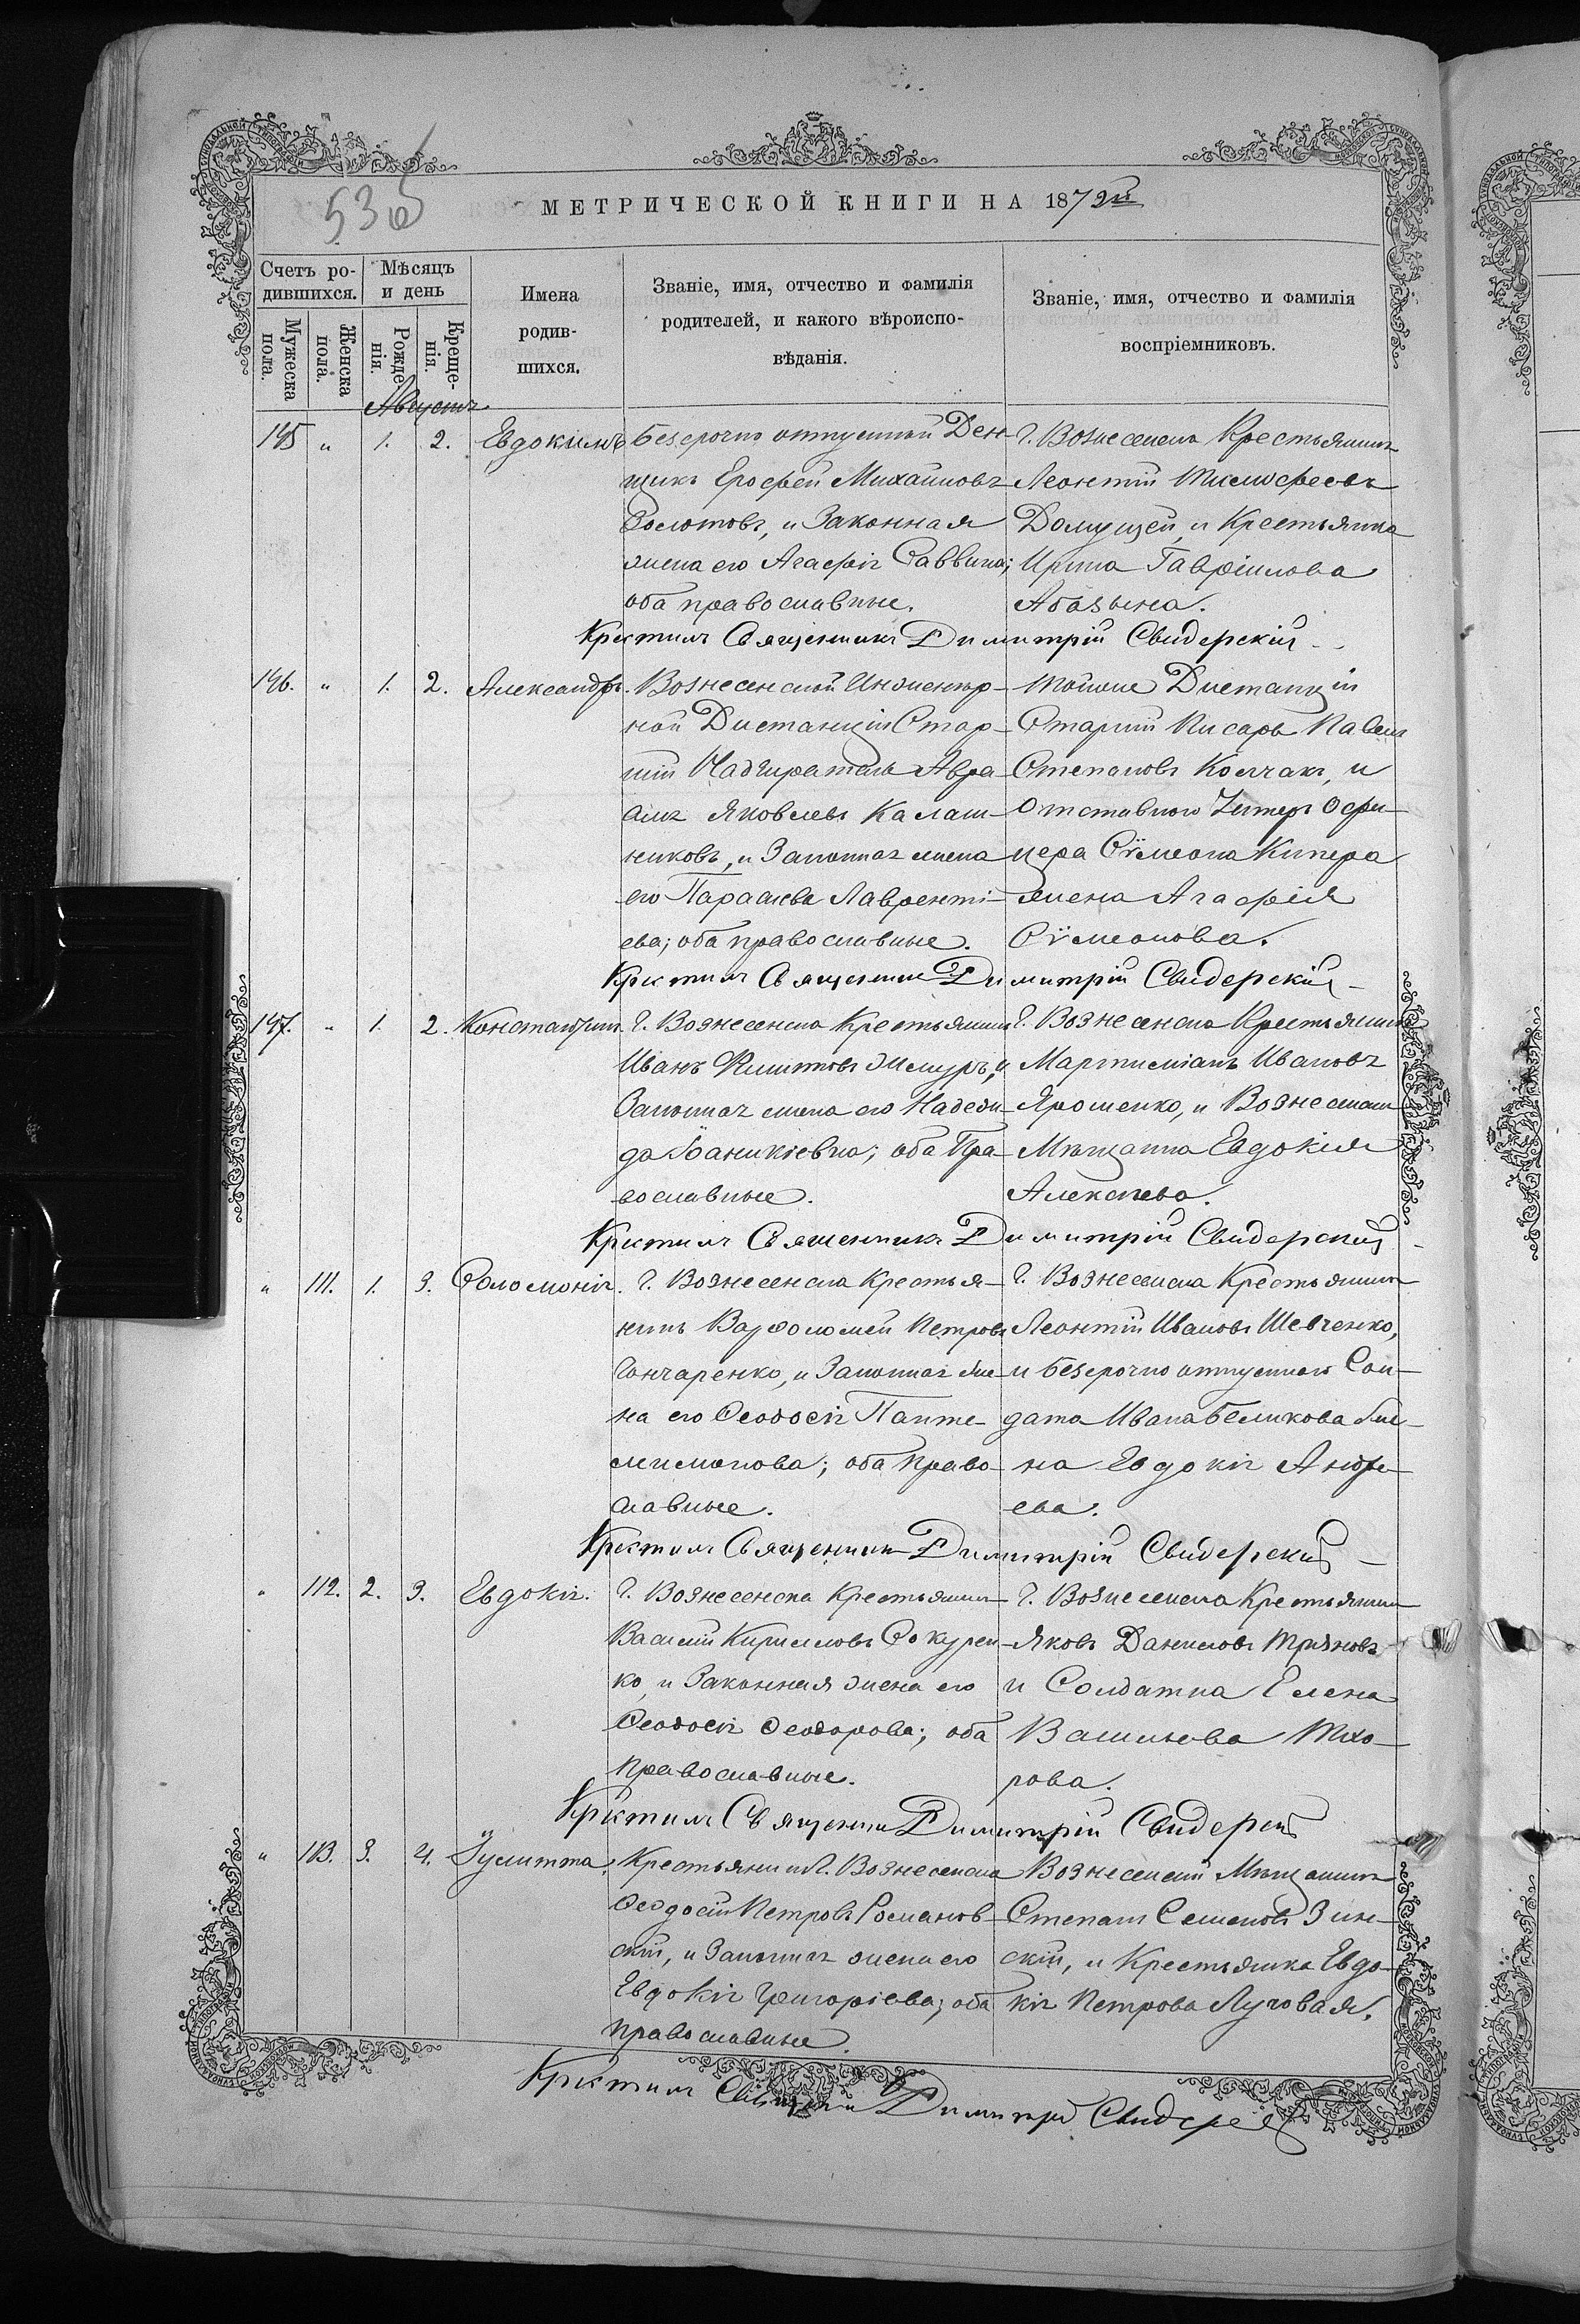 МЕТРИЧЕСКОЙ КНИГИ НА 1872й
Счетъ ро-
дившихся.
Мѣсяцъ
и день
Мужеска
пола.
Женска
пола.
Рожде-
нія.
Креще-
нія.
Имена
родив-
шихся.
Званіе, имя, отчество и фамилія
родителей, и какого вѣроиспо-
вѣданія.
Званіе, имя, отчество и фамилія
воспріемниковъ.
Августъ
145 " 1. 2. Евдокимъ
Безсрочно отпускной Ден-
щикъ Ерофей Михайловъ
Золотовъ, и Законная
жена его Агафія Саввина;
оба православные.
Г. Вознесенска Крестьянинъ
Леонтій
и Крестьянка
Ирина Гавріилова
Абазьина.
Крестилъ Священникъ Димитрій Свидерскій
146. " 1. 2. Александръ.
Вознесенской Инженер-
ной Дистанціи Стар-
шій Надзиратель Авра-
амъ Яковлевъ Калаш-
никовъ, и Законная жена
его Параскева Лаврентi-
ева; оба православные.
Тойже Дистанціи
Старшій Писарь Павелъ
Степановъ Колчакъ, и
Отставного Унтеръ Офи-
цера Сѵмеона Кипера
жена Агафія
Сѵмеонова.
Крестилъ Священникъ Димитрій Свидерскій
147. " 1. 2. Константинъ.
Г. Вознесенска Крестьянинъ
Иванъ и
Законная жена его Надеж-
да Іоаникіевна; оба Пра-
вославные.
Г. Вознесенска Крестьянинъ
Мартиміанъ Ивановъ
Ярошенко, и Вознесенская
Мѣщанка Евдокія
Алексѣева.
Крестилъ Священникъ Димитрій Свидерскій
" 111. 1. 3. Соломонія.
Г. Вознесенска Крестья-
нинъ Варѳоломей Петровъ
Гончаренко, и Законная же-
на его Ѳеодосія Панте-
леимонова; оба право-
славные.
Г. Вознесенска Крестьянинъ
Леонтій Ивановъ Шевченко,
и безсрочно отпускного Сол-
дата Ивана Беликова же-
на Евдокія Андре-
ева.
Крестилъ Священникъ Димитрій Свидерскій
" 112. 2. 3. Евдокія.
Г. Вознесенска Крестьянинъ
Василій Кирилловъ Сокурен-
ко, и Законная жена его
Ѳеодосія Ѳеодорова; оба
православные.
Г. Вознесенска Крестьянинъ
Яковъ Даниловъ
и Солдатка Елена
Васильева Тхо-
рова.
Крестилъ Священникъ Димитрій Свидерскій
" 113. 3. 4. Іулитта.
Крестьянинъ Г. Вознесенска
Ѳеодосій Петровъ Романов-
скій, и Законная жена его
Евдокія Григоріева; оба
православные.
Вознесенскій Мѣщанинъ
Степанъ Семеновъ Зин-
скій, и Крестьянка Евдо-
кія Петрова Луговая.
Крестилъ Священникъ Димитрій Свидерскій